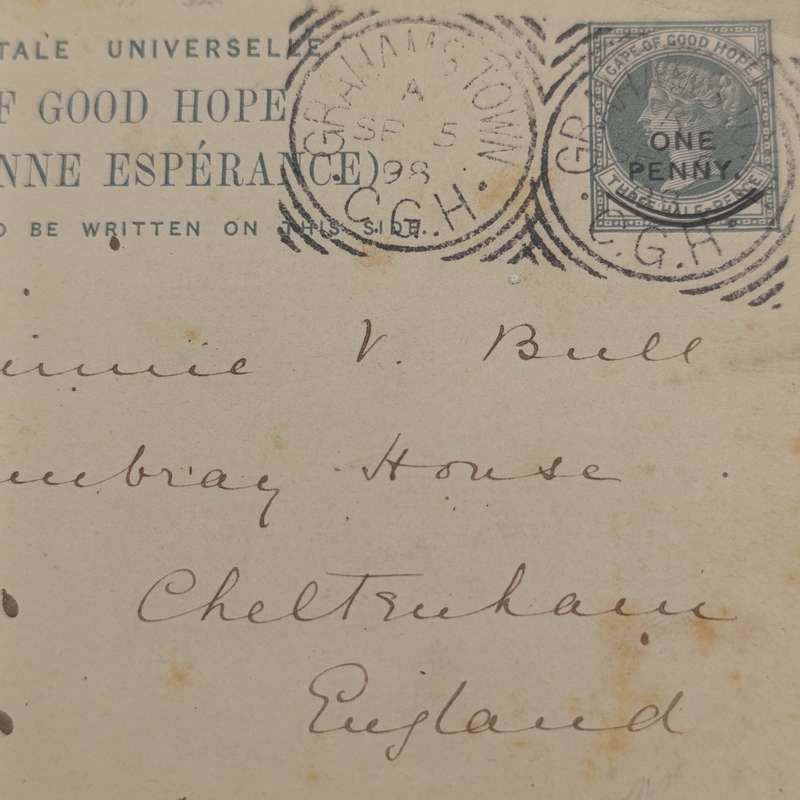 TALE UNIVERSELLE
F GOOD HOPE
NNE ESPÉRANCE)
O BE WRITTEN ON THIS SIDE.
GRAHAMSTOWN
A
SP 5
98
C.G.H.
CAPE OF GOOD HOPE
ONE
PENNY.
THREE-HALF-PENCE
C.G.H.
innie V. Bull
mbray House
Cheltenham
England